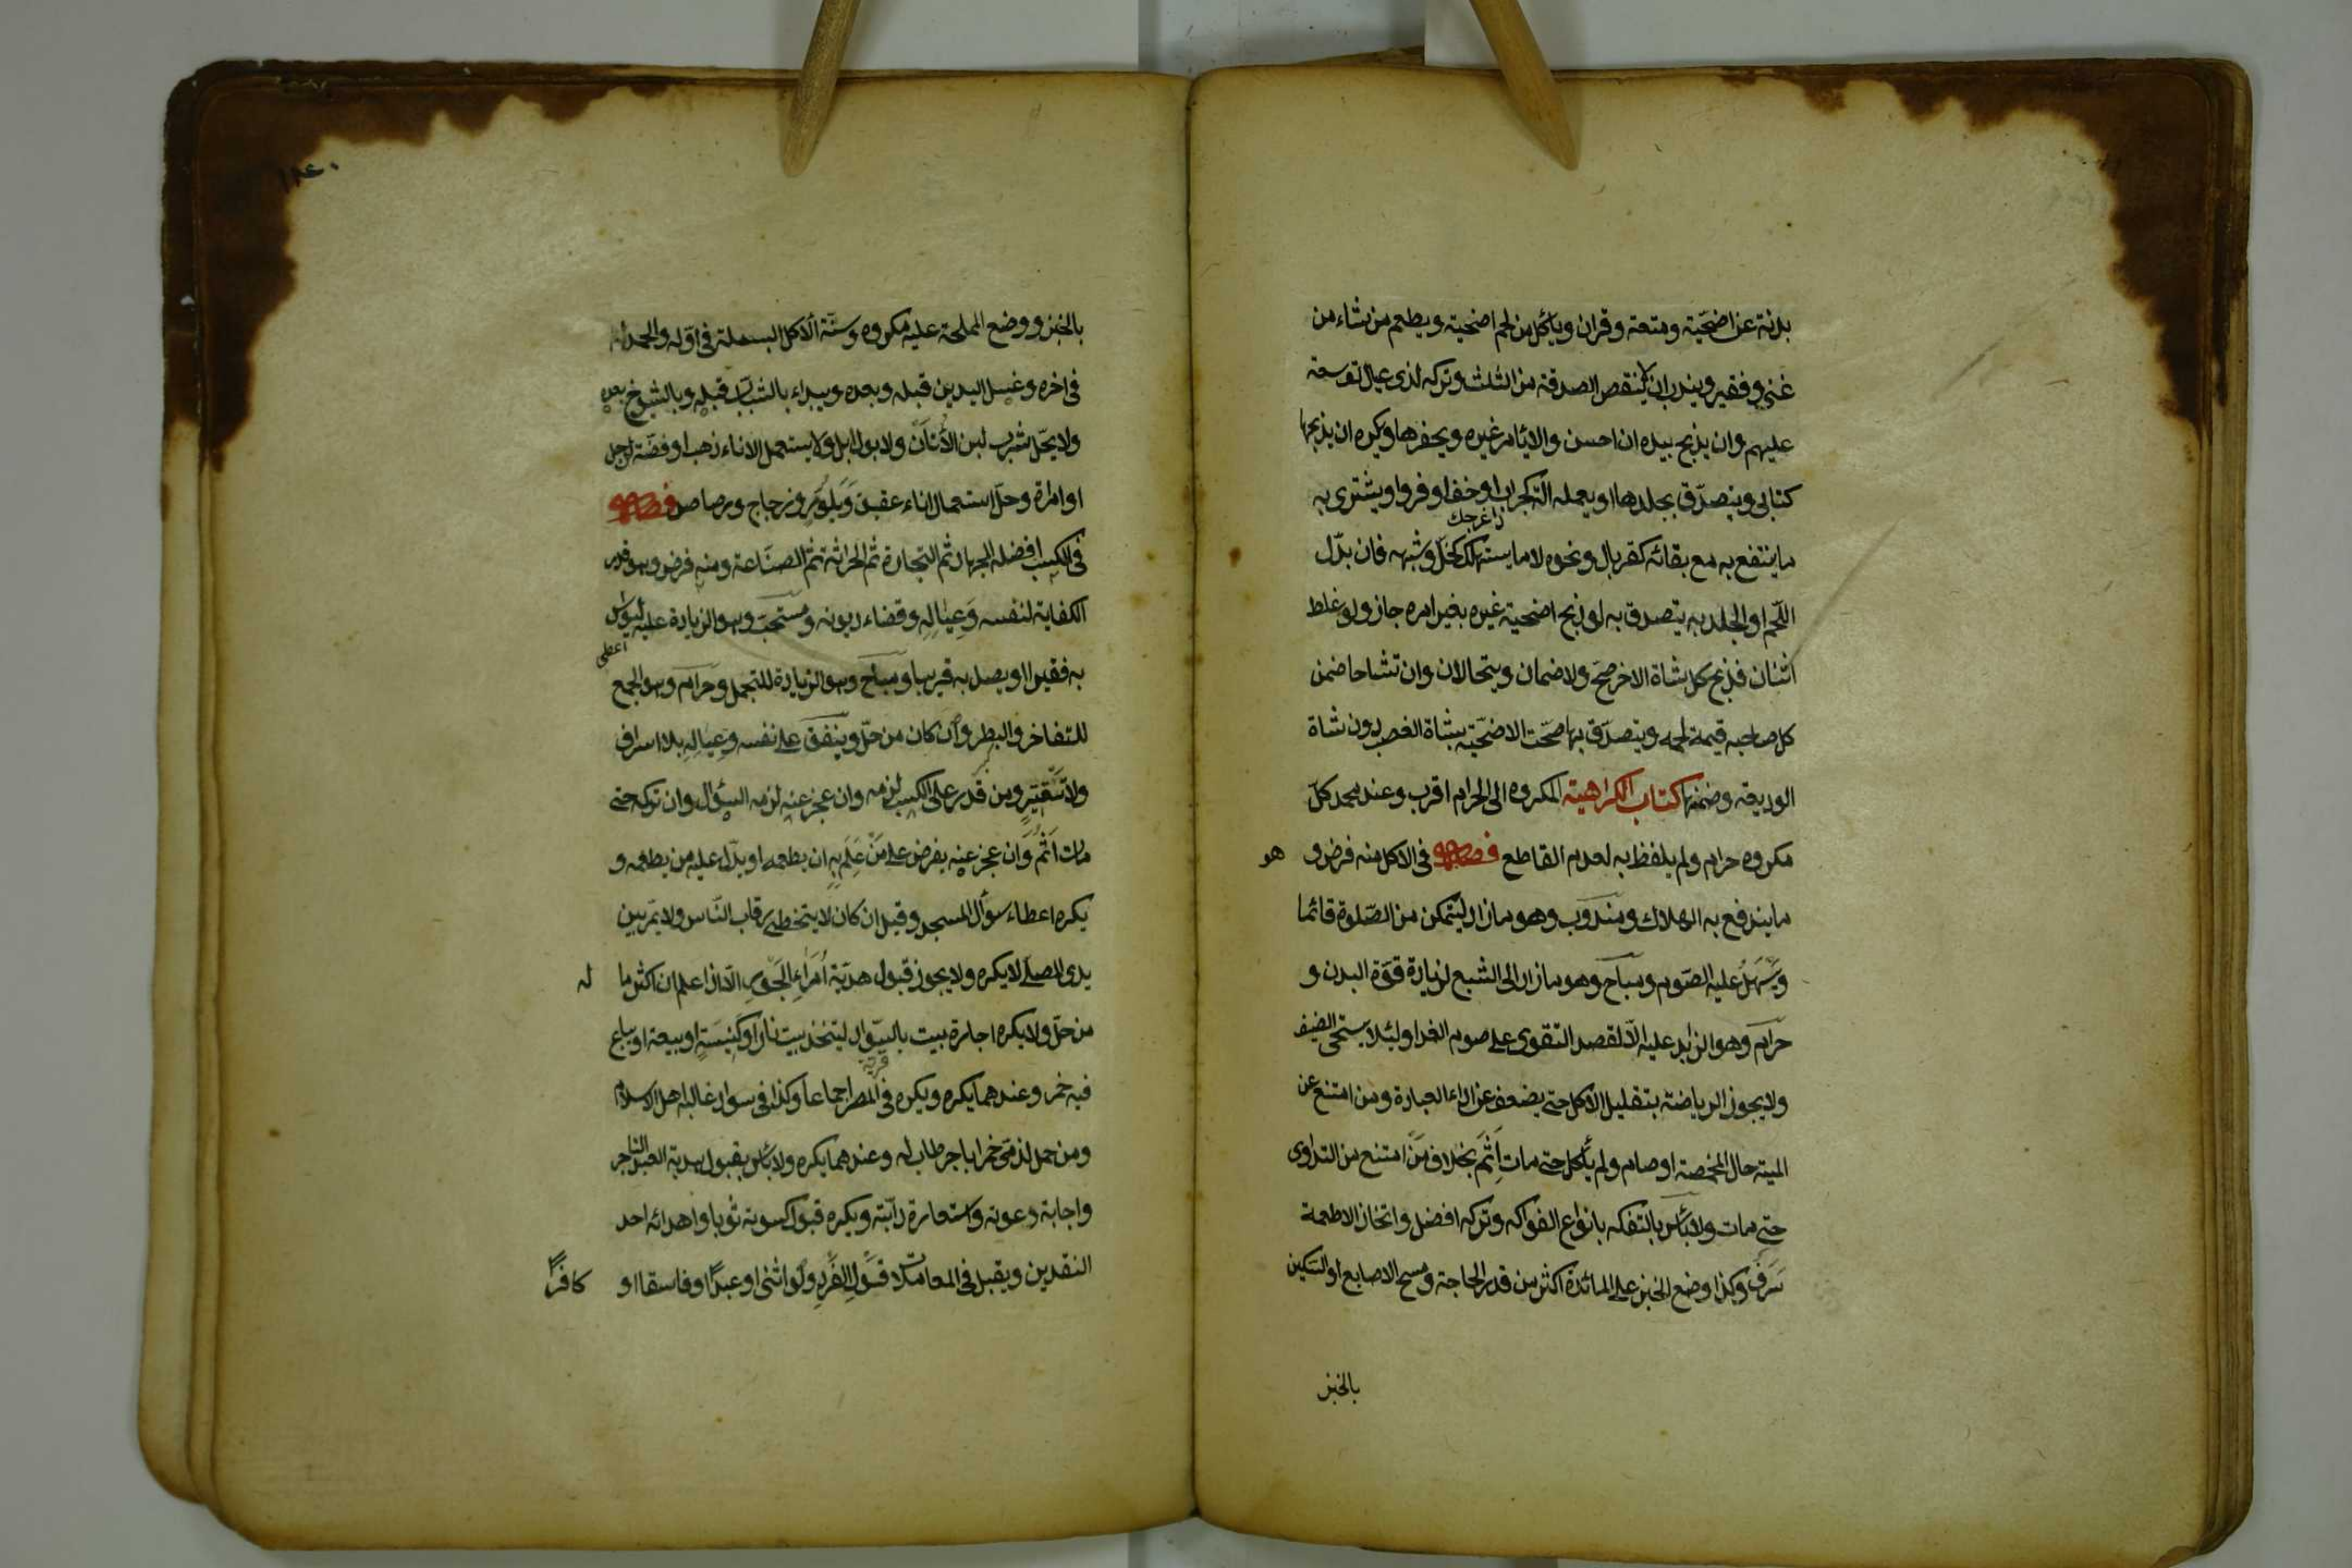 بدنة عن اضحّية ومتعة وقران ويأكل من لحم اضحية ويطعم من شاء من
غنى وفقير ويندب ان لا ينقص الصدقة من الثلث وتركه لذى عيال توسعة
عليهم وان يذبح بيده ان احسن والا يأمر غيره ويحضرها ويكره ان يذبحها
كتابى ويتصدّق بجلدها او يعمله الة كجراب او خف او فروا ويشترى به
ما ينتفع به مع بقائه كغربال ونحوه لا ما يستهلك كخلّ وشبهه فان بدّل
اللّحم او الجلد به يتصدق به لو ذبح اضحية غيره بغير امره جاز ولو غلط
اثنان فذبح كل شاة الاخر صحّ ولا ضمان ويتحالان وان تشاحا ضمن
كل صاحبه قيمة لحمه ويتصدّق بها صحّت الاضحّية بشاة الغصب دون شاة
الوديعة وضمنها كتاب الكراهية المكروه الى الحرام اقرب وعند محمد كلّ
مكروه حرام ولم يلفظ به لعدم القاطع فصل فى الاكل منه فرض و هو
ما يندفع به الهلاك ومندوب وهو ما زاد ليتمكن من الصّلوة قائما
ويسهل عليه الصّوم ومباح وهو ما زاد الى الشبع لزيادة قوّة البدن و
حرام وهو الزايد عليه الّا لقصد التّقوى على صوم الغد او لئلا يستحى الضيف
ولا يجوز الرياضة بتقليل الاكل حتى يضعف عن اداء العبادة ومن امتنع عن
الميتة حال المخمصة او صام ولم يأكل حتى مات اثم بخلاف من امتنع من التداوى
حتى مات ولا بأس بالتفكه بانواع الفواكه وتركه افضل واتخاذ الاطعمة
سرف وكذا وضع الخبز على المائدة اكثر من قدر الحاجة ومسح الاصابع او السّكين
بالخبز
بالخبز ووضع المملحة عليه مكروه وسنّة الاكل البسملة فى اوّله والحمد له
فى اخره وغسل اليدين قبله وبعده ويبداء بالشباب قبله وبالشيوخ بعده
ولا يحّل شرب لبن الأتان ولا بول ابل ولا يستعمل الاناء ذهب او فضّة لرجل
او امراة وحلّ استعمال اناء عقيق وبلّور وزجاج ورصاص فصل
فى الكسب افضله الجهاد ثم التجارة ثم الحراثة ثم الصنّاعة ومنه فرض وهو قدر
الكفاية لنفسه وعياله وقضاء ديونه ومستحبّ وهو الزيادة عليه ليواسى
به فقيرا او يصل به قريبا ومباح وهو الزيادة للتجمل وحرام وهو الجمع
للتفاخر والبطر وان كان من حلّ وينفق على نفسه وعياله بلا اسراف
ولا تقتير ومن قدر على الكسب لزمه وان عجز عنه لزمه السؤال وان تركه حتى
مات اثم وان عجز عنه يفرض على من علم به ان يطعمه او يدّل عليه من يطعمه و
يكره اعطاء سوّال المسجد وقيل ان كان لا يتخطى رقاب النّاس ولا يمّر بين
يدى المصلى لا يكره ولا يجوز قبول هديّة امراء الجور الّا اذا علم ان اكثر ما له
من حلّ ولا يكره اجارة بيت بالسّواد ليتخذ بيت نار او كنيسة او بيعة او يباع
فيه خمر وعندهما يكره ويكره فى المصر اجماعا وكذا فى سواد غالبه اهل الاسلام
ومن حمل لذمّى خمرا باجر طاب له وعندهما يكره ولا بأس بقبول هدية العبد التاجر
واجابة دعوته واستعارة دابّته ويكره قبول كسوته ثوبا واهدائه احد
النقدين ويقبل فى المعاملات قول الفرد ولو انثى او عبدا او فاسقا او كافرا